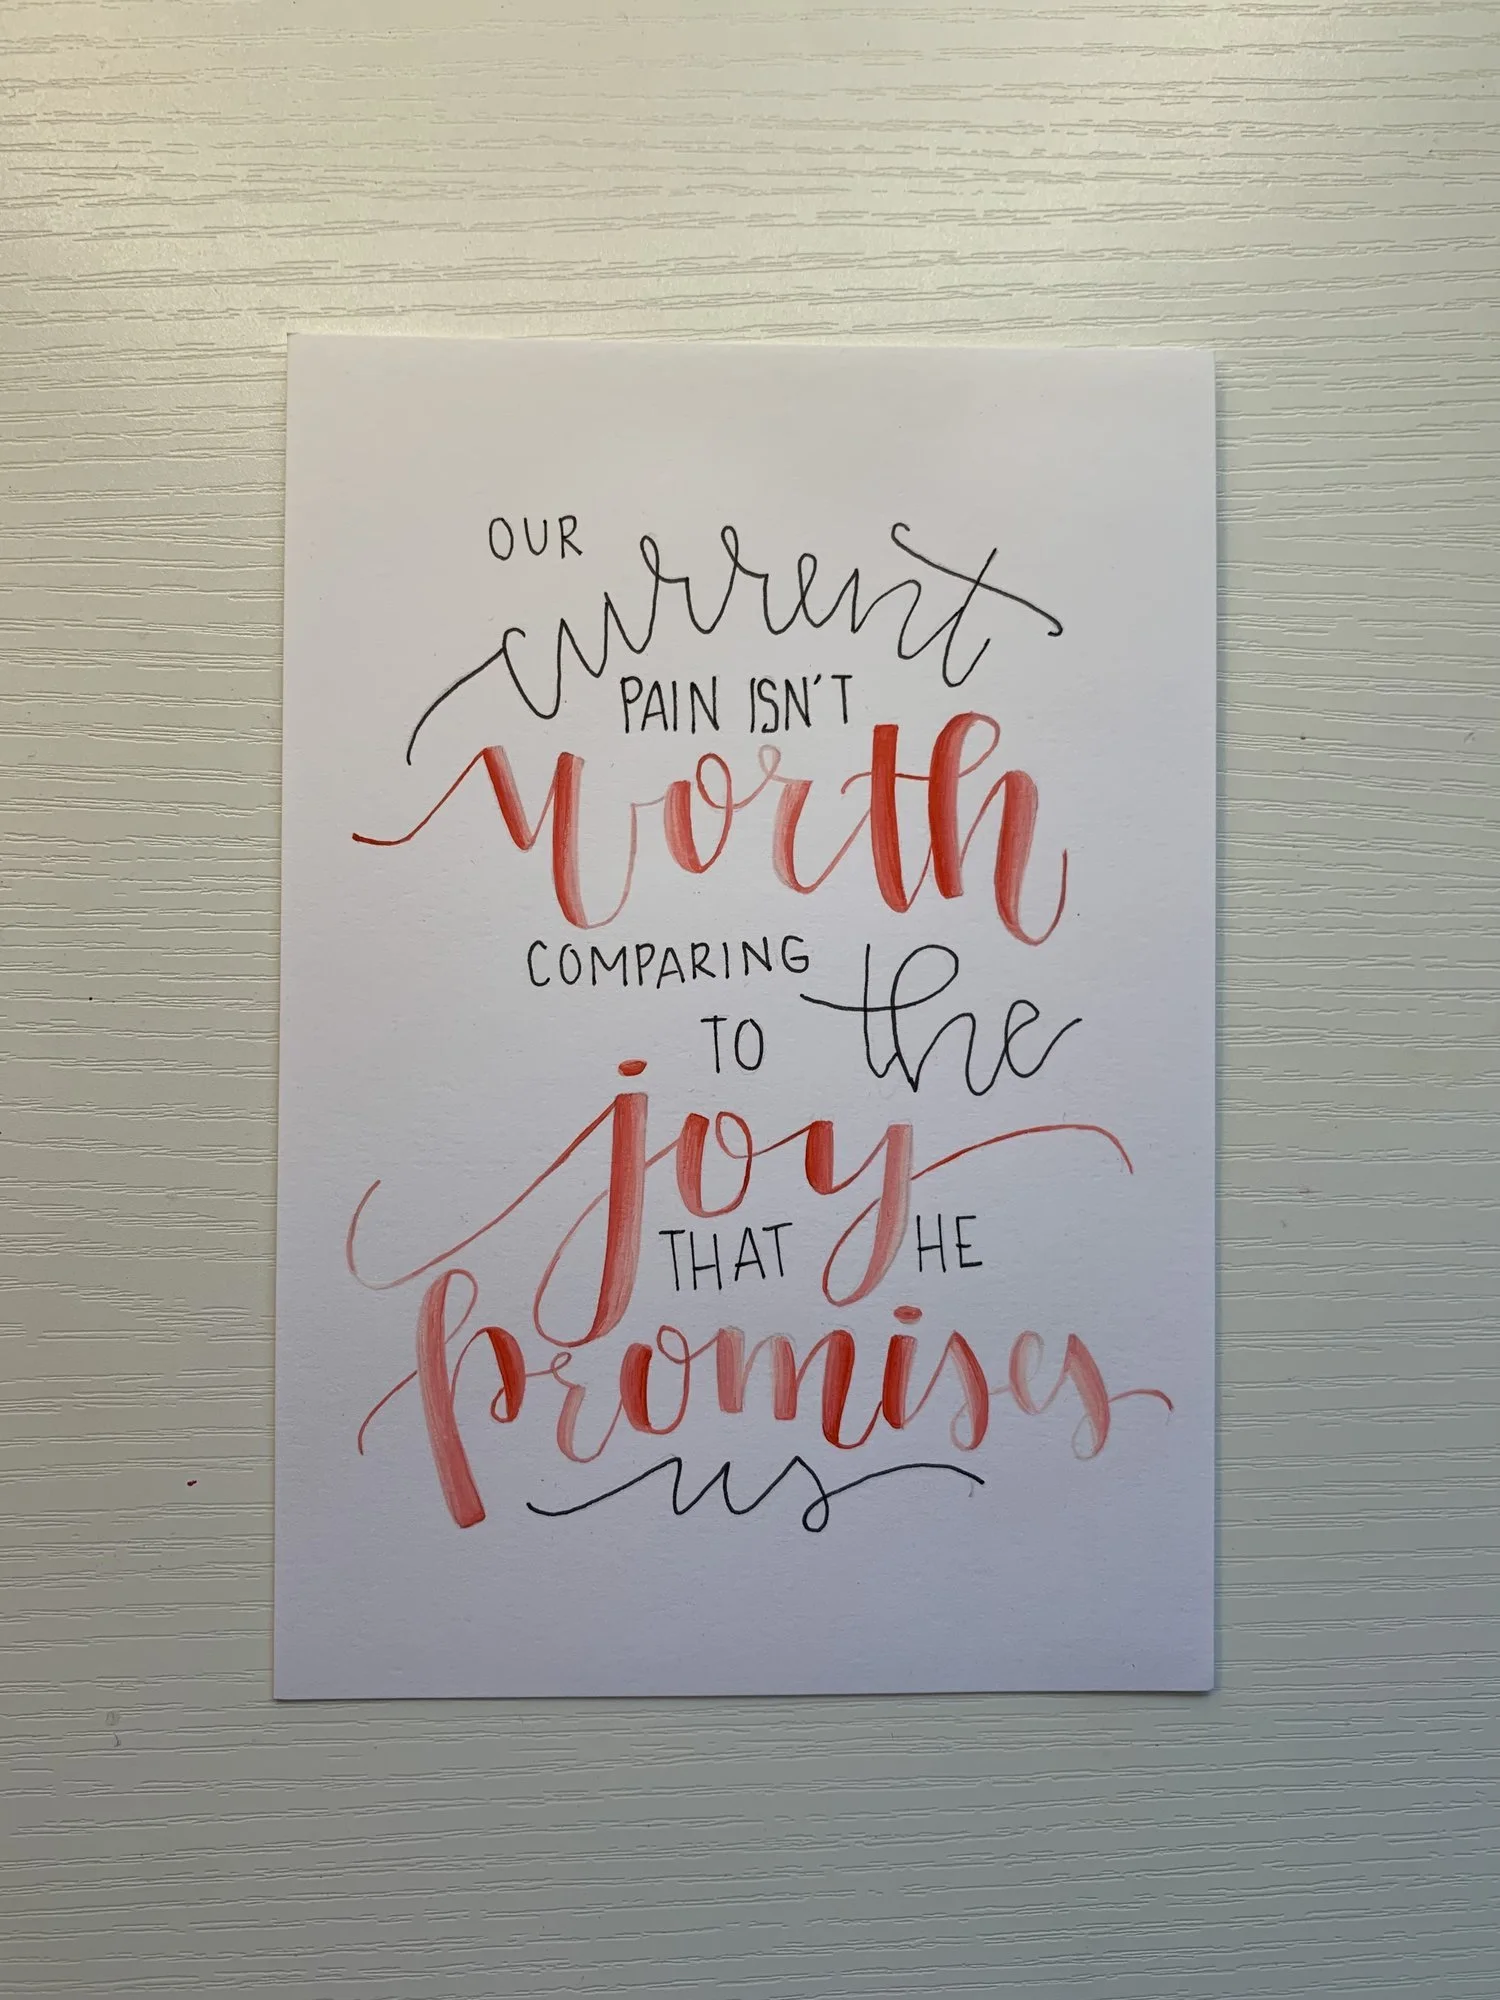 OUR
current
PAIN ISN'T
worth
COMPARING
TO the
joy
THAT HE
promises
us